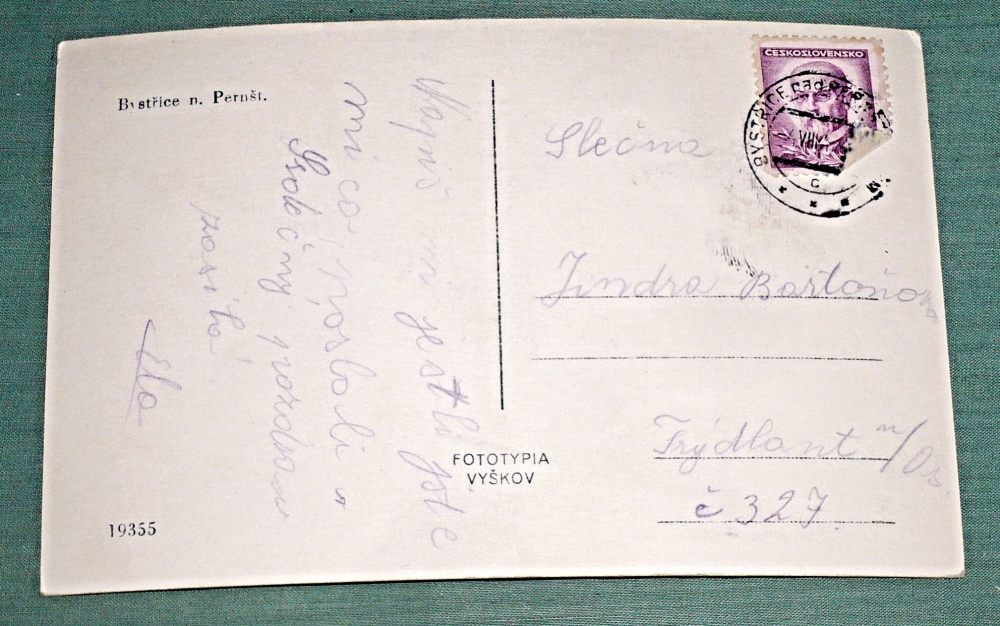 Bystřice n. Pernšt.
Napiš mi jestli jste
mi co poslali a
Srdečný pozdrav
zasílá
Ela
19355
FOTOTYPIA
VYŠKOV
ČESKOSLOVENSKO
BYSTŘICE
VIII
C
Slečna
Jindra Bartoňova
Frýdlant n/Os
č 327